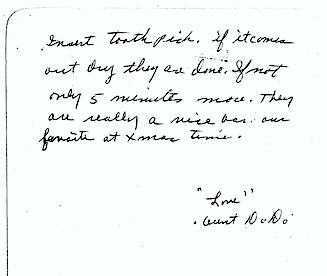 Insert tooth pick. if it comes
out dry they are done. If not
only 5 minutes more. They
are really a nice bar. our
favorite at Xmas time.
"Love"
Aunt DoDo